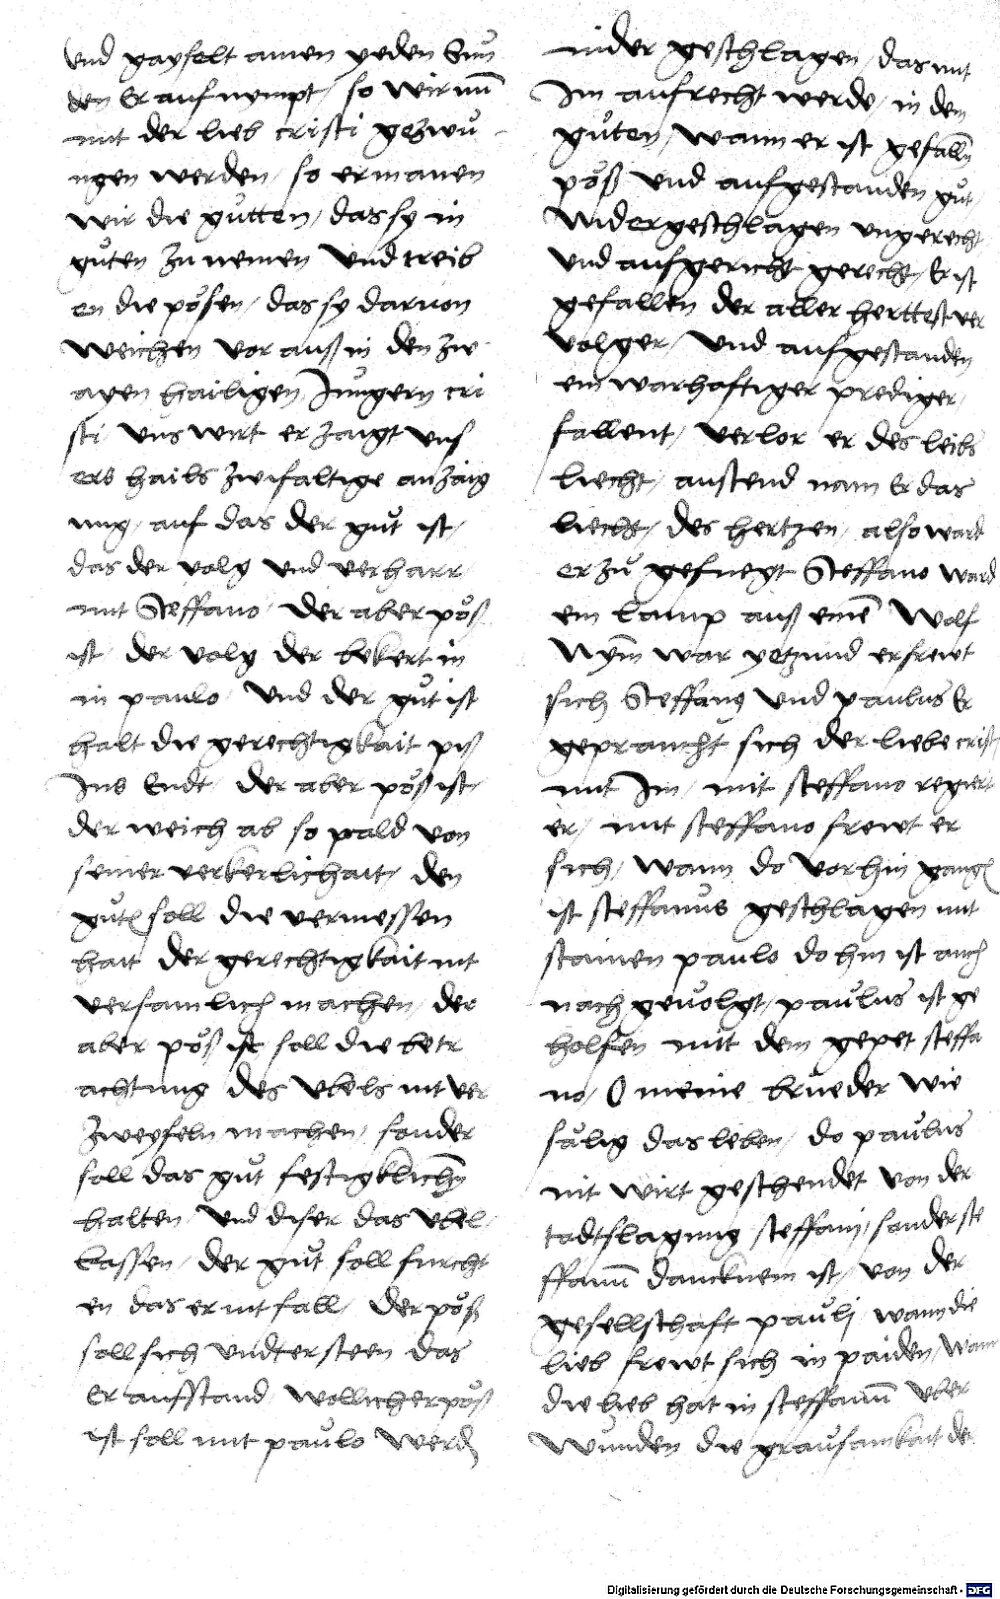 vnd gayselt ainen yeden Sun
den Er auf nympt / so wir nu̅
mit der lieb cristi gezwu
ngen werden / so ermanen
wir die gůtten / das sy in
gůten zu nemen vnd treib
en die pösen / das sy daruon
weichen vor auß in den zw
ayen hailigen Jungern cri
sti / vns wirt er zaigt vns
ers hails zwifaltige anzaig
ung / auf das der gůt ist /
das der volg vnd verharr
mit Steffano / der aber pöß
ist / der volg der bekert in
in paulo / vnd der gůt ist
halt die gerechtigkait piß
Ins Endt / der aber pöß ist /
der weich ab so pald von
seiner verkerlichait / den
gůtē soll die vermessen
hait der gerechtigkait nit
versamlich machen / der
aber pöß ist soll die betr
achtung des vbels nit ver
zweyfeln machen / sonder
soll das gůt festigklichē
halten / vnd diser das vbel
lassen / der gůt soll furcht
en das er nit fall / der pöß
soll sich vndtersteen das
Er aufstand / wöllicher pöß
ist soll mit paulo werdē
nider geschlagen / das mit
Im aufrecht werde / in dem
gůten / wann er ist gefalln̄
pöß vnd aufgestanden gůt /
Nidergeschlagen vngerecht
vnd aufgericht gerecht / Er ist
gefallen der aller herttest ver
volger / vnd aufgestanden
ein warhaftiger prediger /
fallent / verlor er des leibs
liecht / aufstend nam Er das
liecht / des hertzen / also ward
er zů gefuegt Steffano ward
ein lamp auß eine̅ wolf
Nym̄ war yetzund erfrewt
sich Steffanꝰ vnd paulus Er
gepraucht sich der liebe crist
mit Im / mit steffano regiert
er / mit steffano frewt er
sich / wann do vorhin gangē
ist steffanus geschlagen mit
stainen paulo do hin ist auch
nach geuolgt / paulus ist ge
holfen mit dem gepet steffa
no / O meine brueder wie
sälig das leben / do paulus
nit wirt geschendet von der
todtslagung steffani / sonder ste
ffanu̅ dancknem ist / von der
gesellschaft pauli / wann die
lieb frewt sich in paiden / wann
die lieb hat in steffanu̅ vber
wunden die grausamkait de
Digitalisierung gefördert durch die Deutsche Forschungsgemeinschaft - DFG